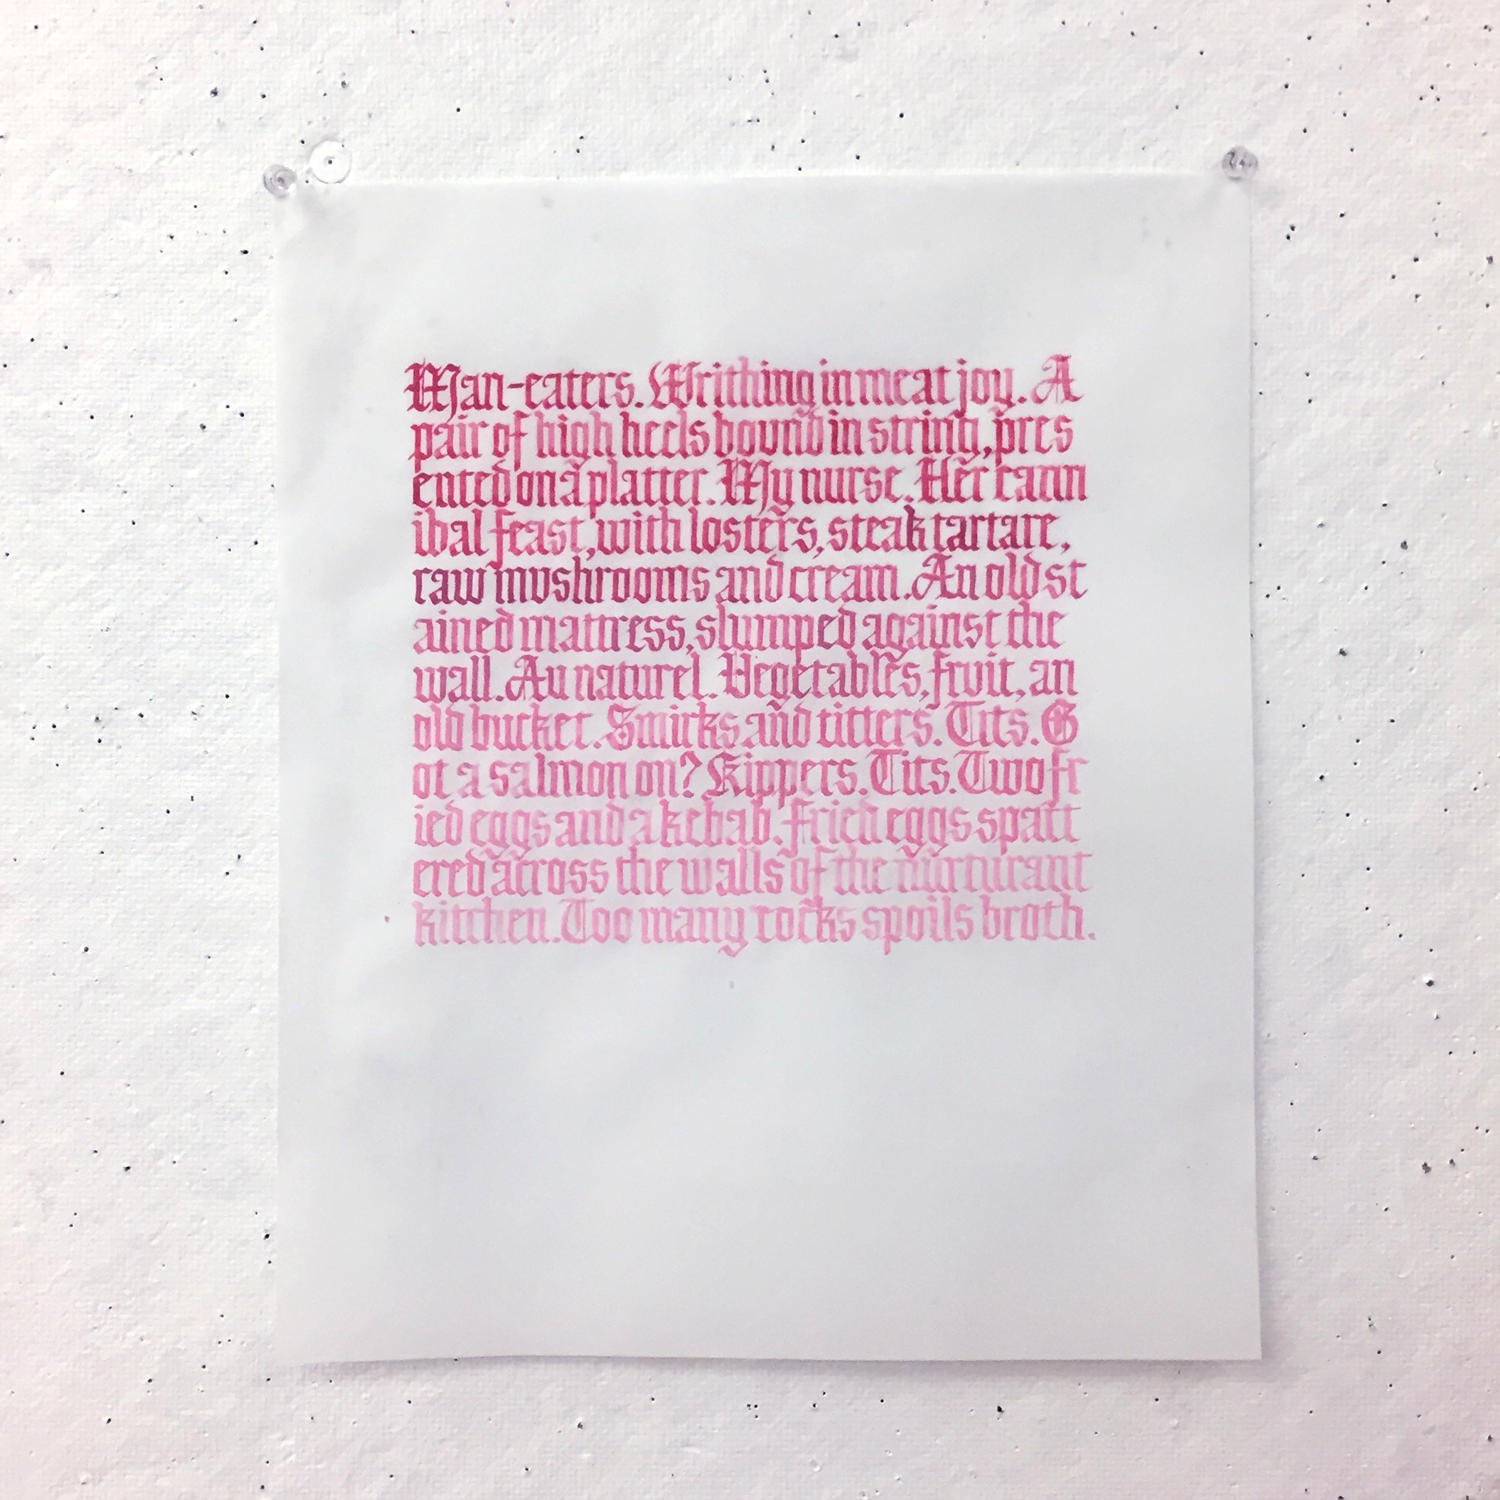 Man-eaters. Writhing in meat joy. A
pair of high heels bound in string, pres
ented on a platter. My nurse. Her cann
ibal feast, with losters, steak tartare,
raw mushrooms and cream. An old st
ained mattress, slumped against the
wall. Au naturel. Vegetables, fruit, an
old bucket. Smirks and titters. Tits. G
ot a salmon on? Kippers. Tits. Two fr
ied eggs and a kebab. Fried eggs spatt
ered across the walls of the nurturant
kitchen. Too many cocks spoils broth.